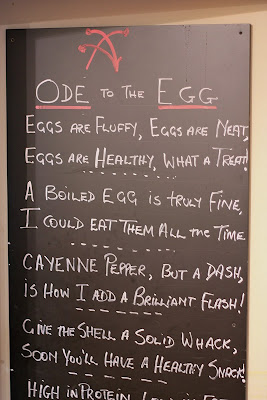 ODE TO THE EGG
EGGS ARE FLUFFY, EGGS ARE NEAT,
EGGS ARE HEALTHY, WHAT A TREAT!
A BOILED EGG IS TRULY FINE,
I COULD EAT THEM ALL THE TIME
CAYENNE PEPPER, BUT A DASH,
IS HOW I ADD A BRILLIANT FLASH!
GIVE THE SHELL A SOLID WHACK,
SOON YOU'LL HAVE A HEALTHY SNACK!
HIGH IN PROTEIN